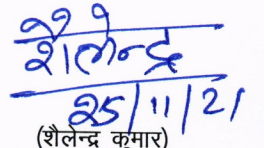 शैलेन्द्र
25/11/21
(शैलेन्द्र कुमार)